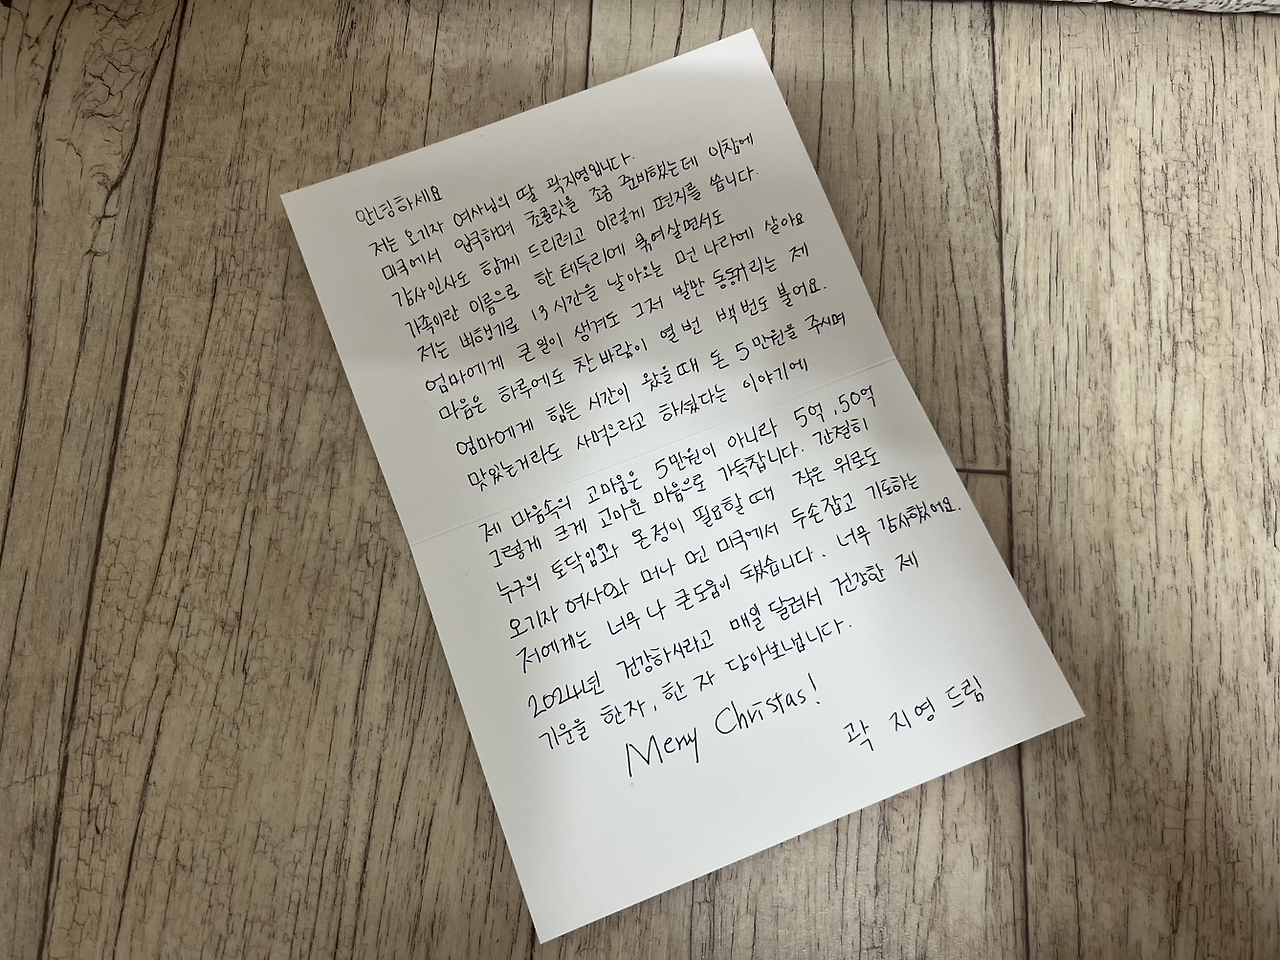 안녕하세요
저는 오기자 여사님의 딸 곽지영입니다.
미국에서 입국하며 초콜릿을 조금 준비했는데 이참에
감사인사도 함께 드리려고 이렇게 편지를 씁니다.
가족이란 이름으로 한 테두리에 묶여살면서도
저는 비행기로 13시간을 날아오는 먼 나라에 살아요
엄마에게 큰일이 생겨도 그저 발만 동동거리는 제
마음은 하루에도 찬바람이 열번 백번도 불어요.
엄마에게 힘든 시간이 왔을때 돈 5만원을 주시며
맛있는거라도 사먹으라고 하셨다는 이야기에
제 마음속의 고마움은 5만원이 아니라 5억, 50억
그렇게 크게 고마운 마음으로 가득찹니다. 간절히
누구의 토닥임과 온정이 필요할때 작은 위로도
오기자 여사와 머나 먼 미국에서 두손잡고 기도하는
저에게는 너무 나 큰도움이 됐습니다. 너무 감사했어요.
2024년 건강하시라고 매일 달려서 건강한 제
기운을 한자, 한 자 담아보냅니다.
Merry Christas!
곽 지영 드림